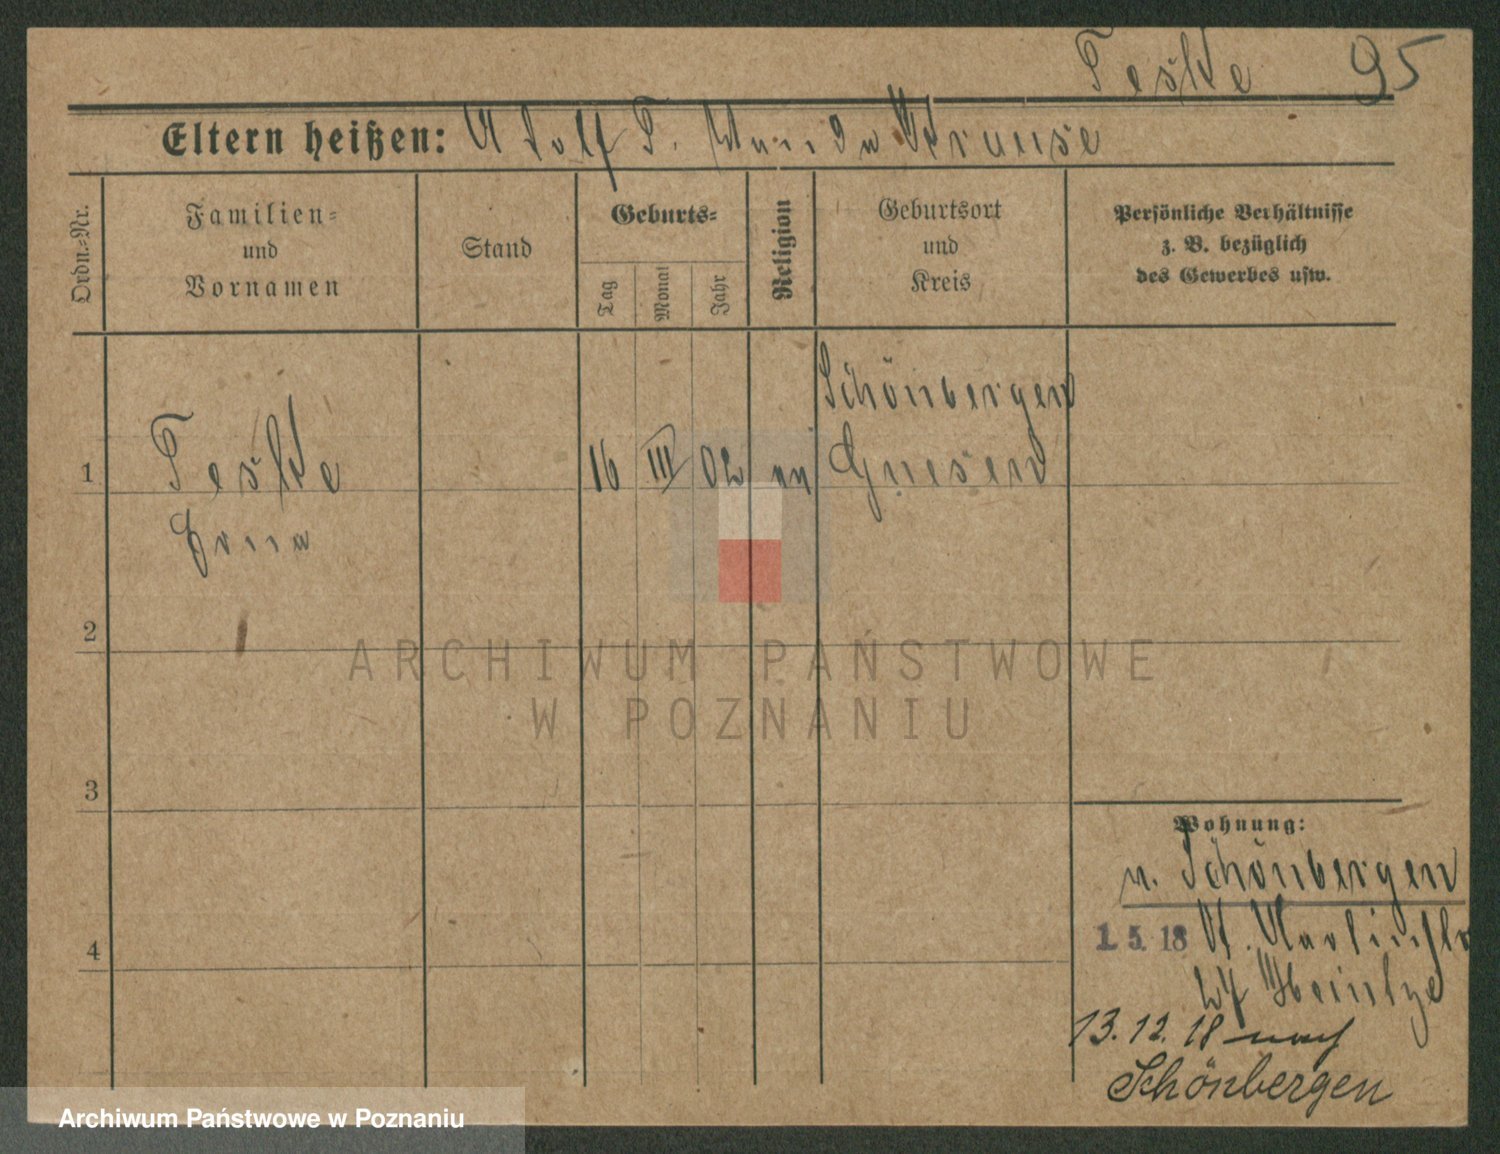 Teske 95
Eltern heißen: Adolf T. Wanda Krause
Ordn.=Nr.
Familien=
und
Vornamen
Stand
Geburts=
Tag
Monat
Jahr
Religion
Geburtsort
und
Kreis
Persönliche Verhältnisse
z. B. bezüglich
des Gewerbes usw.
1 Teske 16 III 02 Schönbergen
Gnesen
2
3
4
Wohnung:
v. Schönbergen
1. 5. 18
13.12.18 nach
Schönbergen
ARCHIWUM PAŃSTWOWE
W POZNANIU
Archiwum Państwowe w Poznaniu